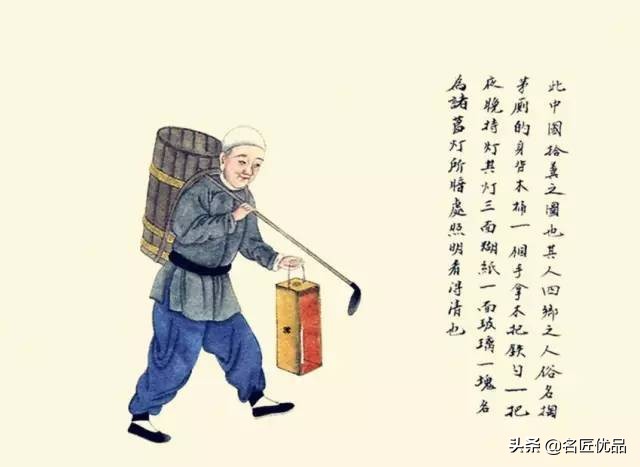 此中國拾糞之圖也其人四鄉之人俗名掏
茅厠的身背木桶一個手拿木把鉄勺一把
夜晚持灯其灯三面糊紙一面玻璃一塊名
為諸葛灯所將處照明看得清也
头条 @名匠优品